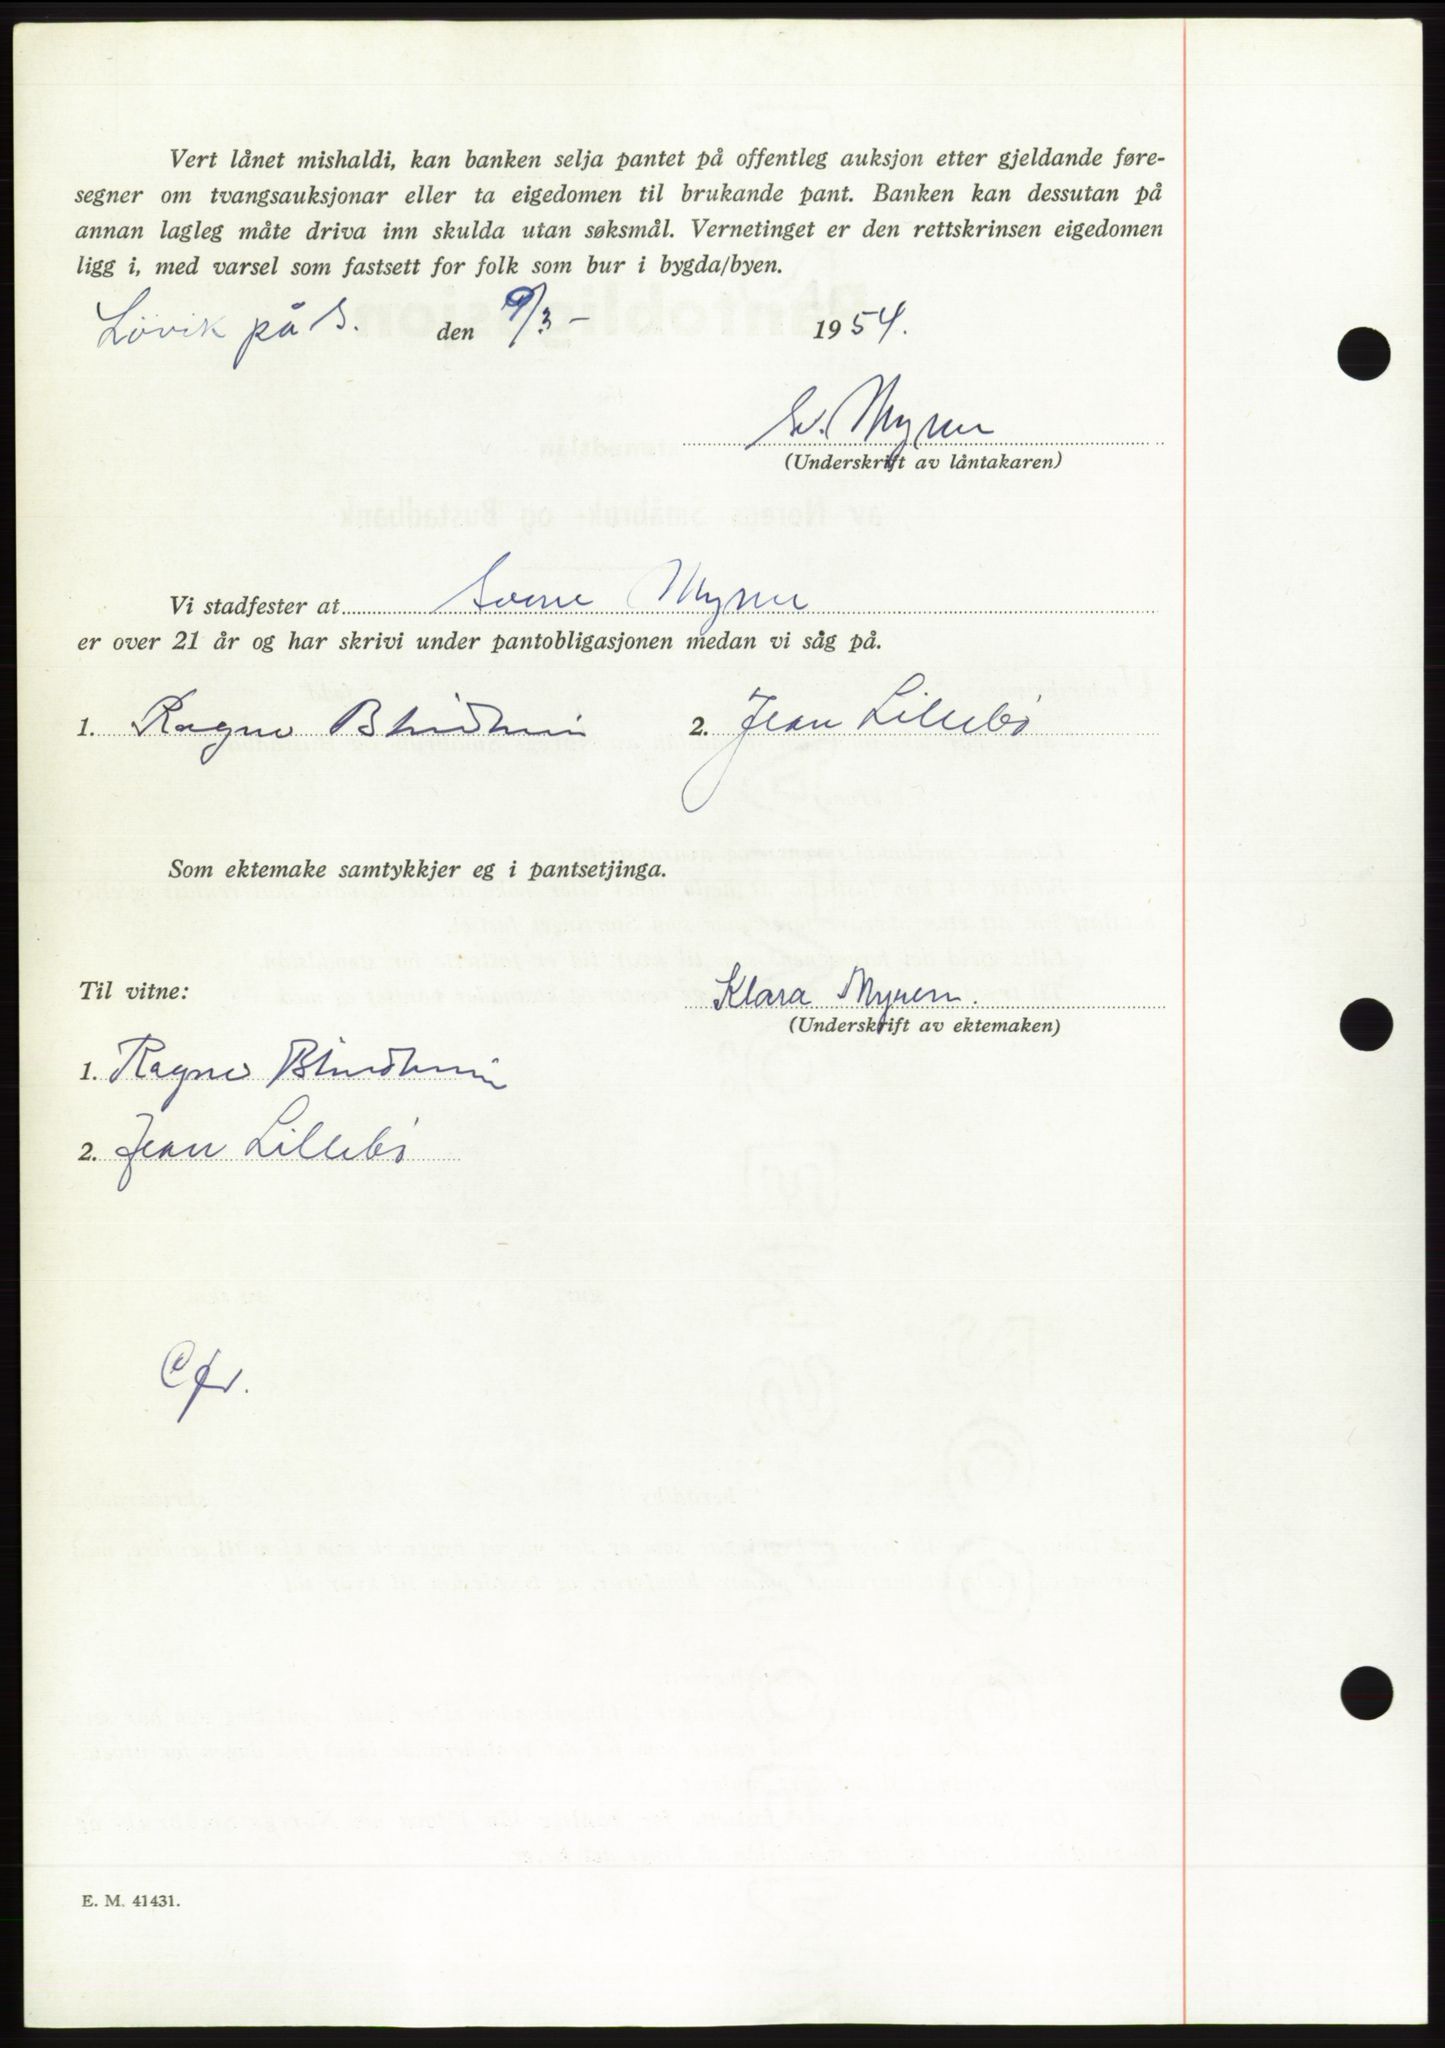 Vert lånet mishaldi, kan banken selja pantet på offentleg auksjon etter gjeldande føre-
segner om tvangsauksjonar eller ta eigedomen til brukande pant. Banken kan dessutan på
annan lagleg måte driva inn skulda utan søksmål. Vernetinget er den rettskrinsen eigedomen
ligg i, med varsel som fastsett for folk som bur i bygda/byen.
Lövik på S. den 9/3- 1954.
Sv. Myren
(Underskrift av låntakaren)
Vi stadfester at Sverre Myren
er over 21 år og har skrivi under pantobligasjonen medan vi såg på.
1. Ragna Blindheim 2. Jean Lillebö
Som ektemake samtykkjer eg i pantsetjinga.
Til vitne: Klara Myren.
(Underskrift av ektemaken)
1. Ragna Blindheim
2. Jean Lillebö
Cfr.
E. M. 41431.